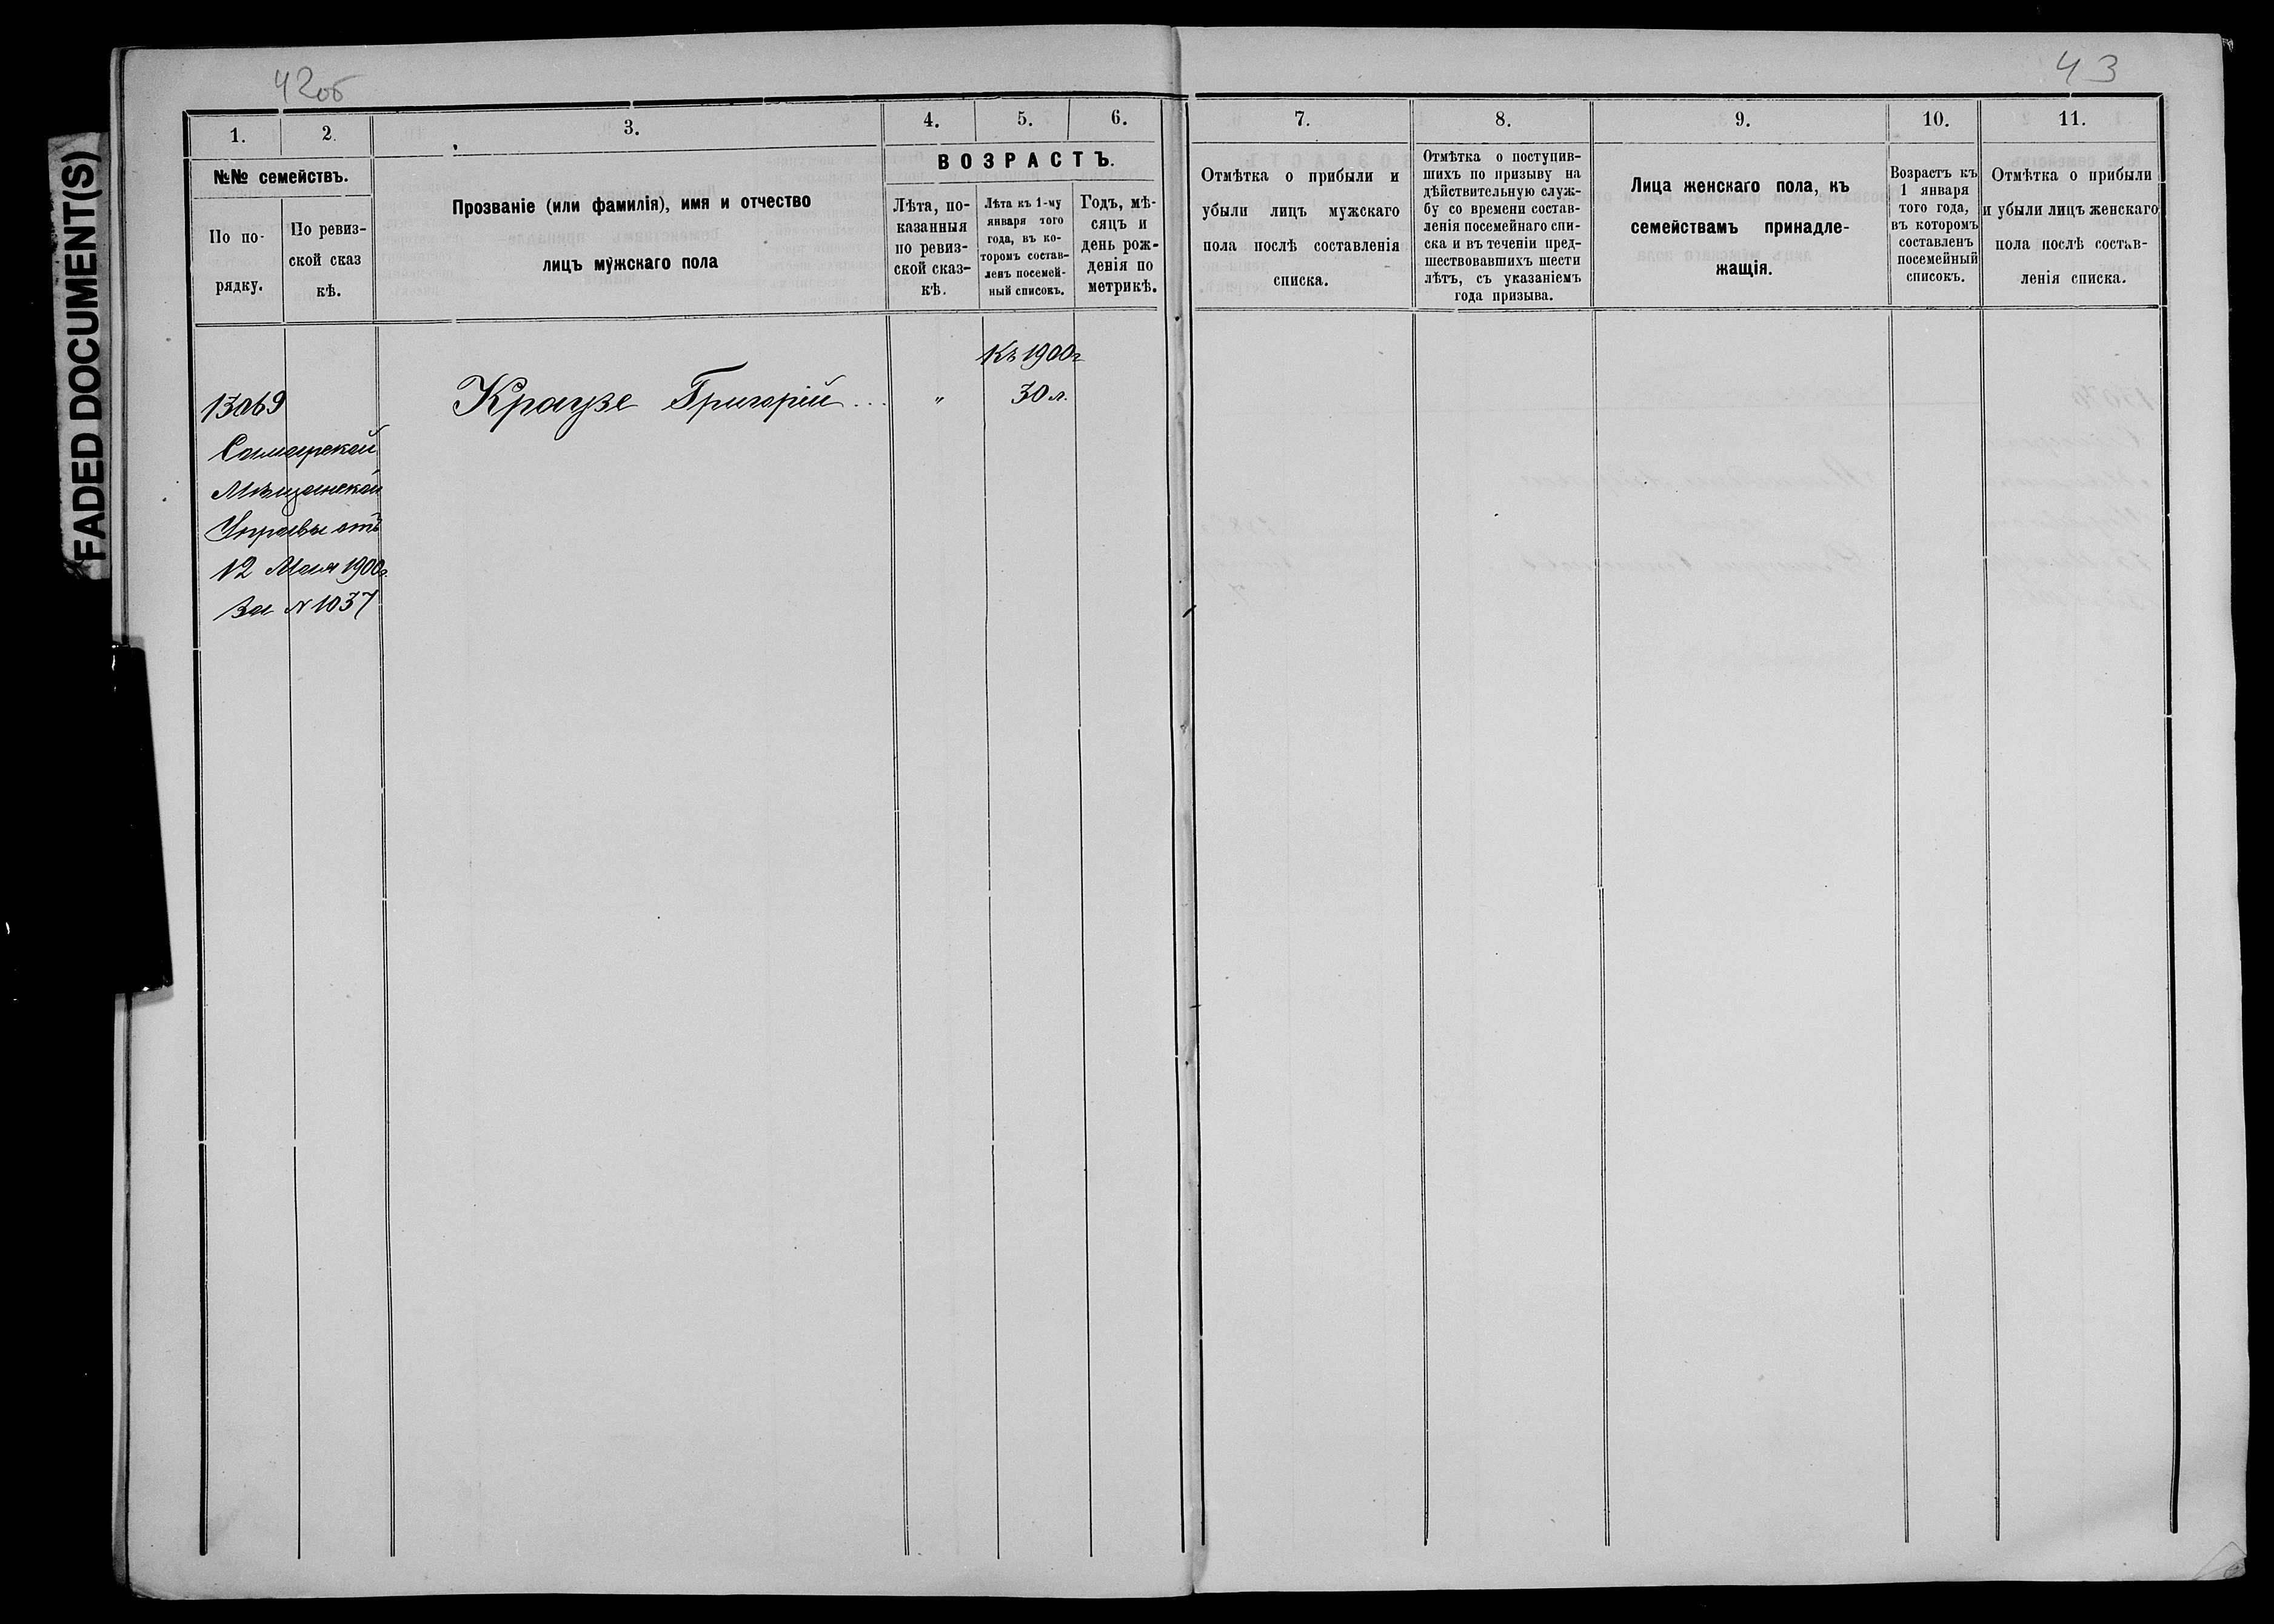 FADED DOCUMENT(S)
42об
43
1.
2.
3.
4.
5.
6.
7.
8.
9.
10.
11.
№№ семействъ.
По по-
рядку.
По ревиз-
ской сказ
кѣ.
Прозваніе (или фамилія), имя и отчество
лицъ мужскаго пола
ВОЗРАСТЪ.
Лѣта, по-
казанныя
по ревиз-
ской сказ-
кѣ.
Лѣта къ 1-му
января того
года, въ ко-
торомъ состав-
ленъ посемей-
ный списокъ.
Годъ, мѣ-
сяцъ и
день рож-
денія по
метрикѣ.
Отмѣтка о прибыли и
убыли лицъ мужскаго
пола послѣ составленія
списка.
Отмѣтка о поступив-
шихъ по призыву на
дѣйствительную служ-
бу со времени состав-
ленія посемейнаго спи-
ска и въ теченіи пред-
шествовавшихъ шести
лѣтъ, съ указаніемъ
года призыва.
Лица женскаго пола, къ
семействамъ принадле-
жащія.
Возрастъ къ
1 января
того года,
въ которомъ
составленъ
посемейный
списокъ.
Отмѣтка о прибыли
и убыли лицъ женскаго
пола послѣ состав-
ленія списка.
Къ 1900г
13069
Краузе Григорій...
"
30 л.
Самарской
Мѣщанской
Управы отъ
12 Мая 1900г.
За N 1037